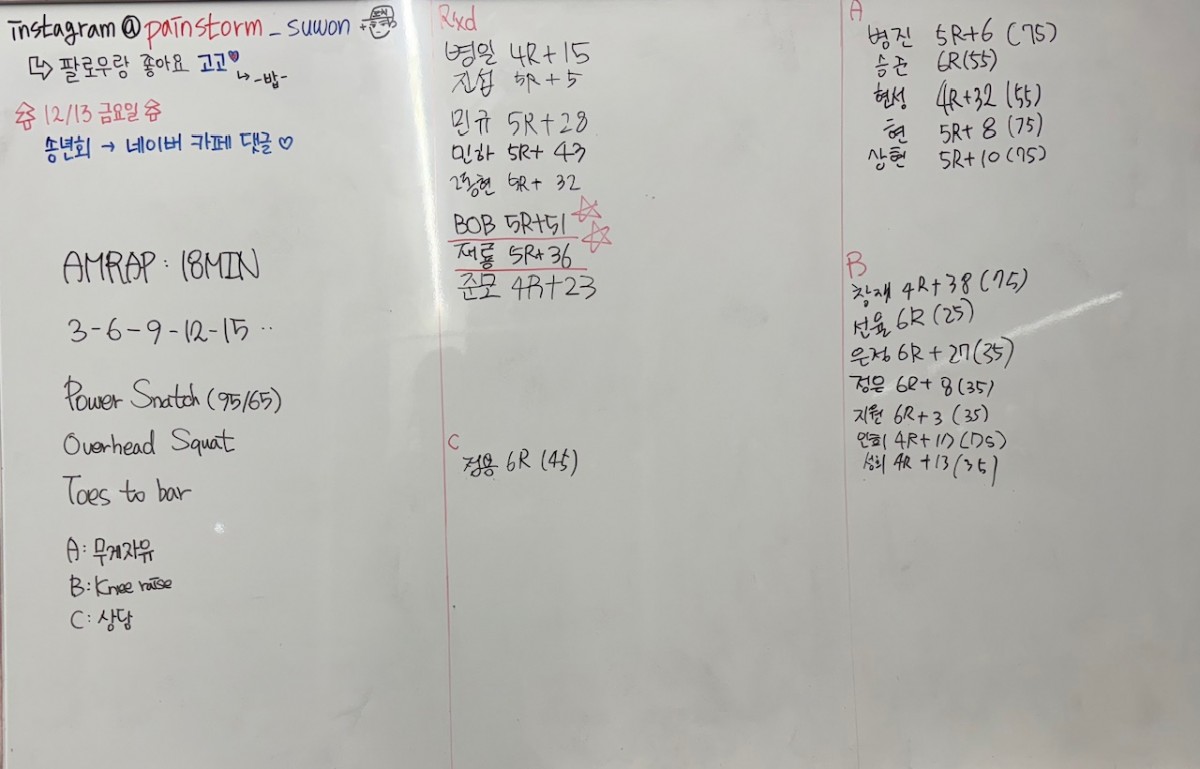 instagram@painstorm_suwon
팔로우랑 좋아요 고고♥
↳ -밥-
12/13 금요일
송년회 → 네이버 카페 댓글♡
AMRAP : 18MIN
3-6-9-12-15 ..
Power Snatch (95/65)
Overhead Squat
Toes to bar
A: 무게자유
B: Knee raise
C: 상담
Rxd
병일 4R+15
진섭 5R+5
민규 5R+28
민하 5R+43
동현 5R+32
BOB 5R+51
재룡 5R+36
준모 4R+23
C
정용 6R (45)
A
병진 5R+6 (75)
승준 6R (55)
현성 4R+32 (55)
현 5R+8 (75)
상현 5R+10 (75)
B
창재 4R+38 (75)
선율 6R (25)
은정 6R+27 (35)
정은 6R+8 (35)
지원 6R+3 (35)
4R+
성희 4R+13 (35)